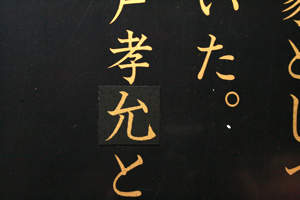 として
いた。
戸孝允と